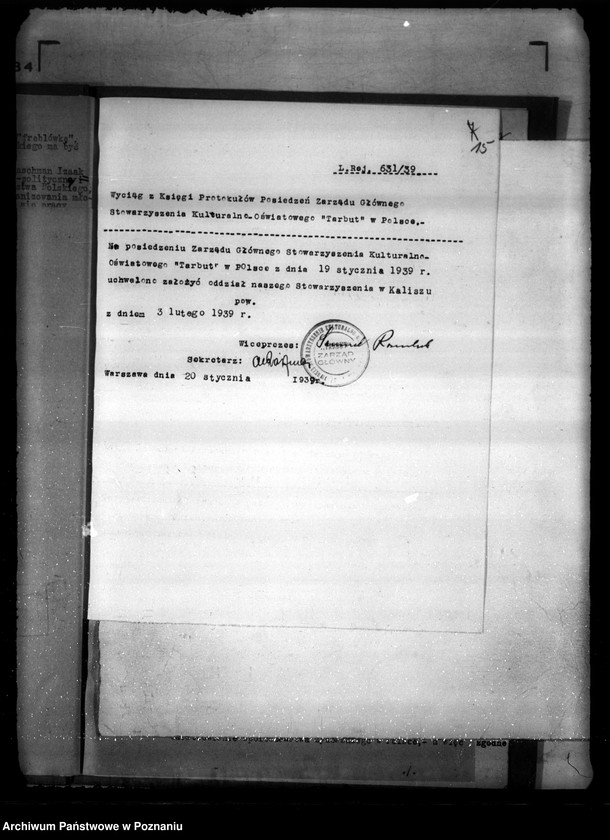 34
"frablówka",
kiego ma być
Izaak
polityczny
stwa Polskiego,
nizowania mło-
15
L.Rej. 631/39
Wyciąg z Księgi Protokułów Posiedzeń Zarządu Głównego
Stowarzyszenia Kulturalno-Oświatowego "Tarbut" w Polsce.-
Na posiedzeniu Zarządu Głównego Stowarzyszenia Kulturalno-
Oświatowego "Tarbut" w POlsce z dnia 19 stycznia 1939 r.
uchwalono założyć oddział naszego Stowarzyszenia w Kaliszu
pow.
z dniem 3 lutego 1939 r.
Wiceprezes:
ZARZĄD
GŁÓWNY
Sekretarz:
Warszawa dnia 20 stycznia 1939r.
zgodne
./.
Archiwum Państwowe w Poznaniu